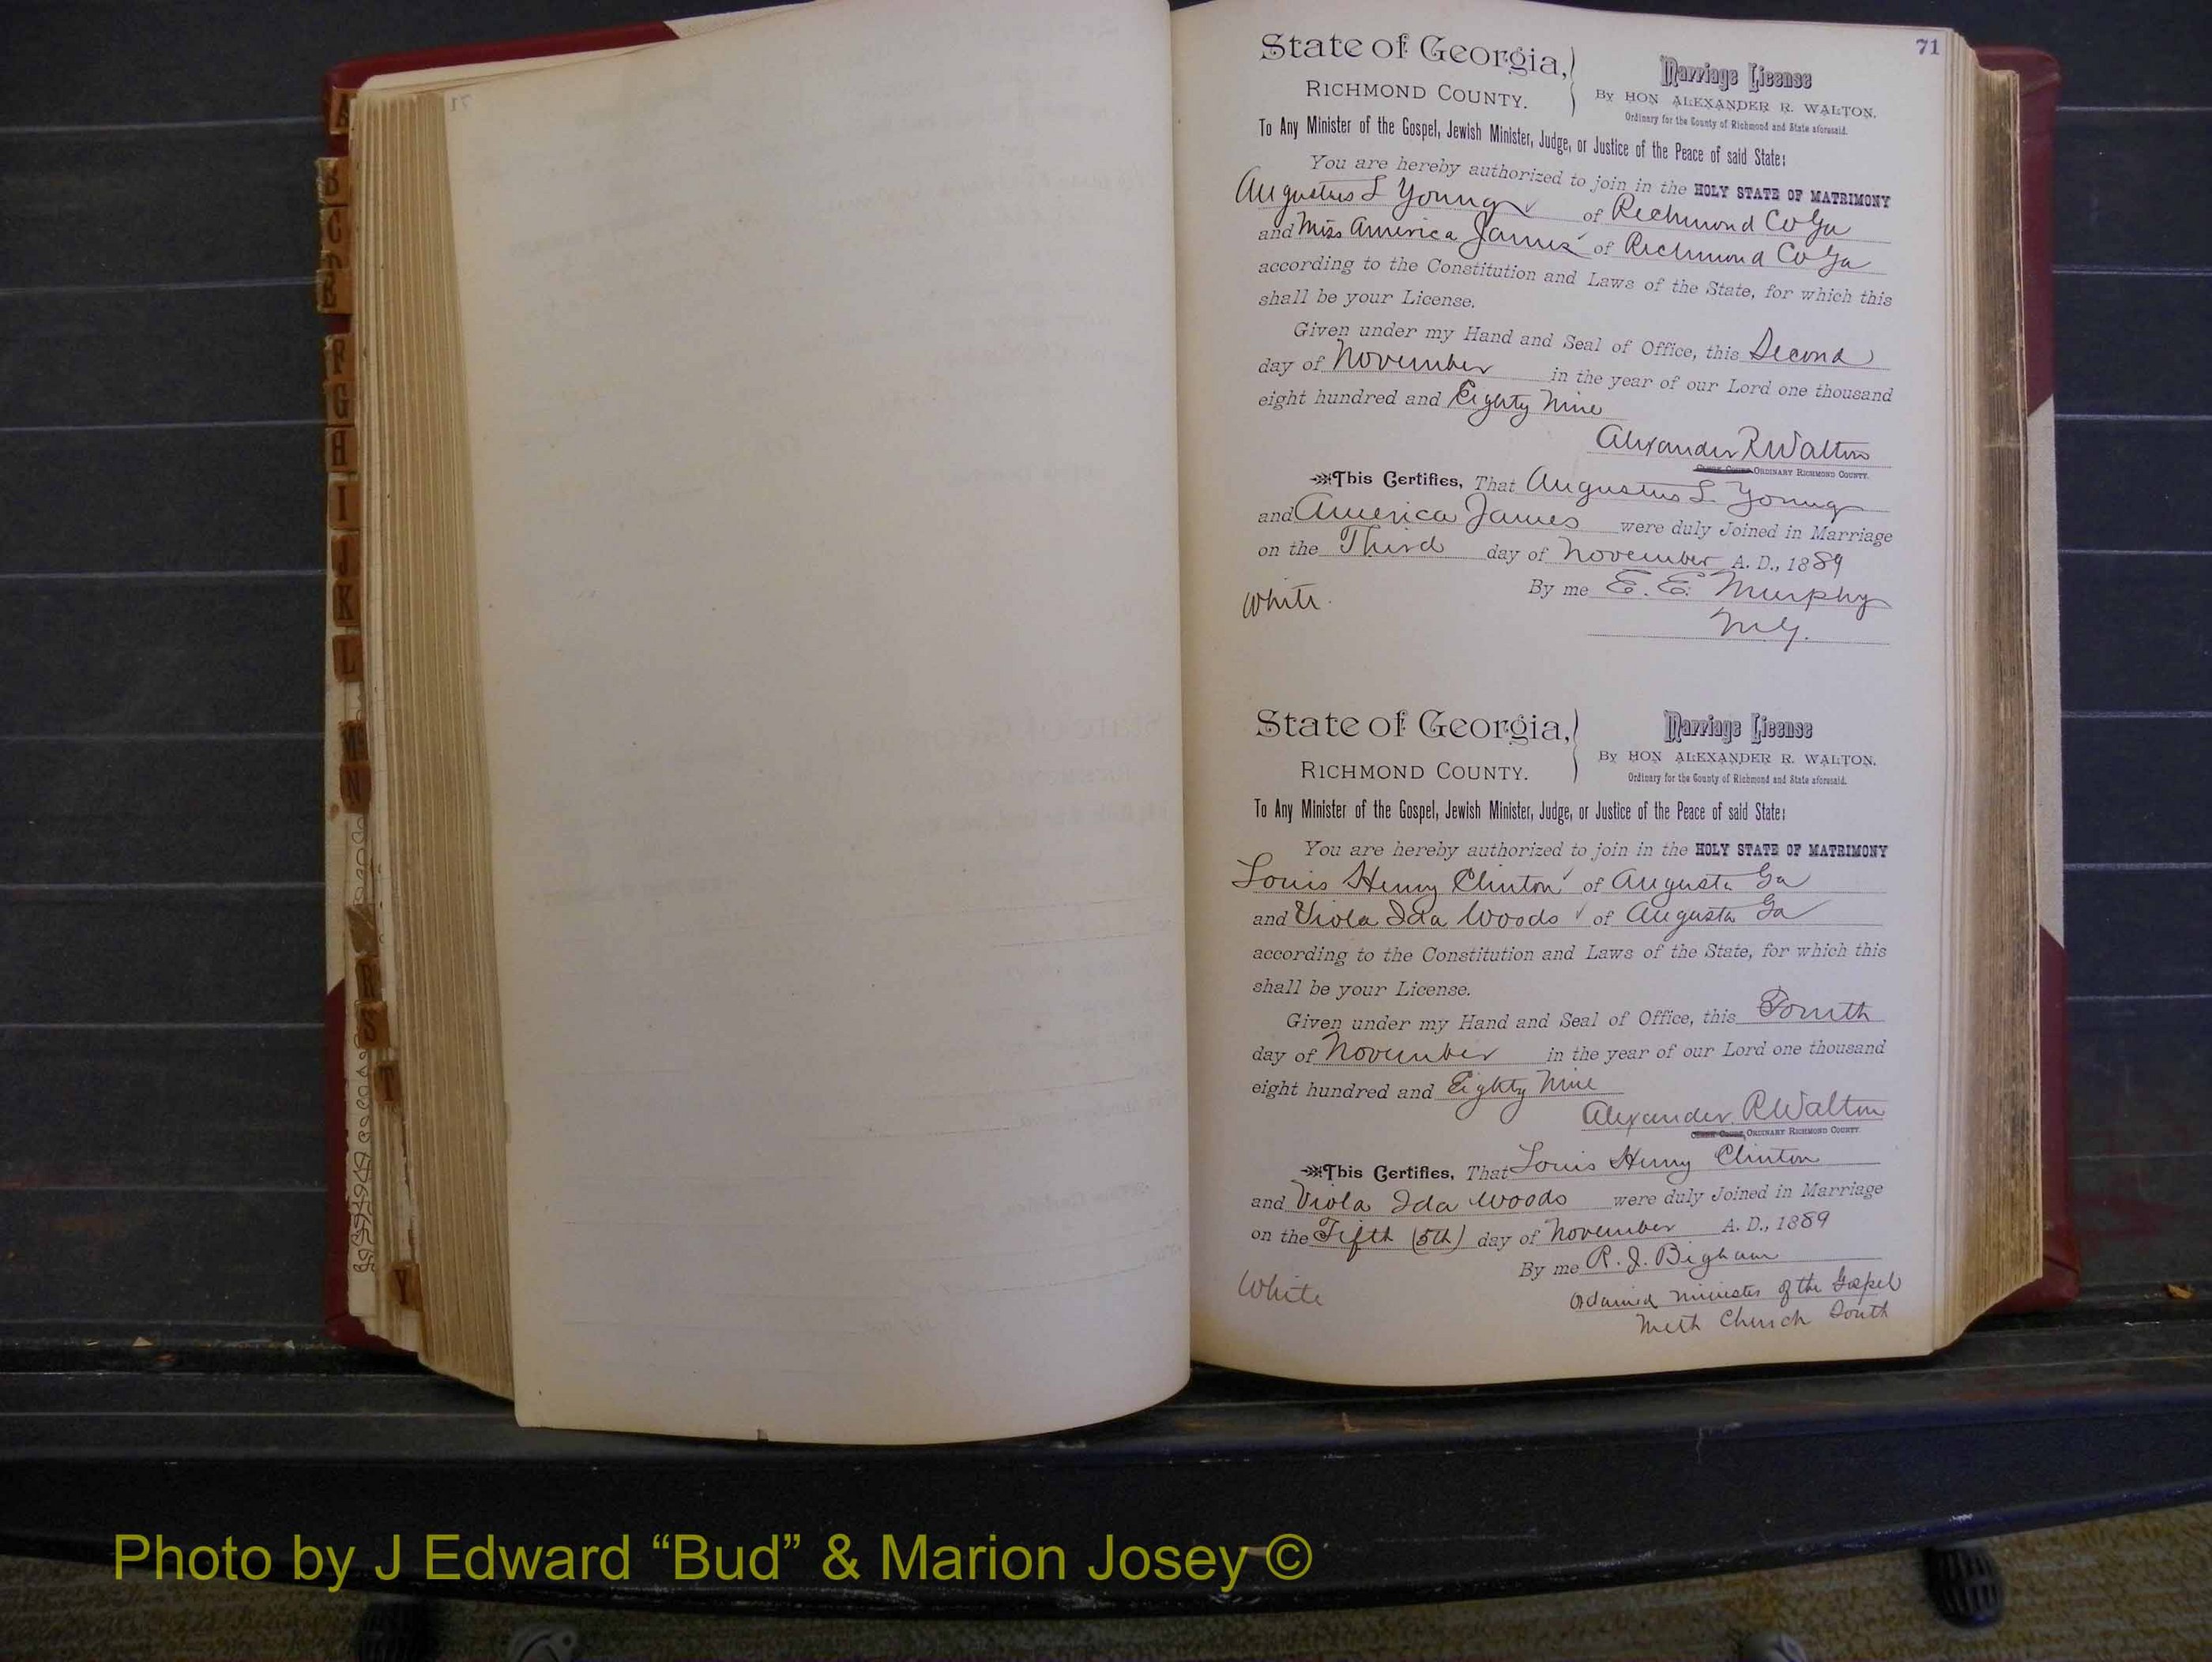 71
State of Georgia,
RICHMOND COUNTY.
Marriage License
By HON ALEXANDER R. WALTON,
Ordinary for the County of Richmond and State aforesaid.
To Any Minister of the Gospel, Jewish Minister, Judge, or Justice of the Peace of said State:
You are hereby authorized to join in the HOLY STATE OF MATRIMONY
Augustus L Young of Richmond Co Ga
and Miss America James of Richmond Co Ga
according to the Constitution and Laws of the State, for which this
shall be your License.
Given under my Hand and Seal of Office, this Second
day of November in the year of our Lord one thousand
eight hundred and Eighty Nine
Alexander R Walton
ORDINARY RICHMOND COUNTY.
This Certifies, That Augustus L Young
and America James were duly Joined in Marriage
on the Third day of November A. D., 1889
By me E. E. Murphy
M.G.
White.
State of Georgia,
RICHMOND COUNTY.
Marriage License
By HON ALEXANDER R. WALTON,
Ordinary for the County of Richmond and State aforesaid.
To Any Minister of the Gospel, Jewish Minister, Judge, or Justice of the Peace of said State:
You are hereby authorized to join in the HOLY STATE OF MATRIMONY
Louis Henry Clinton of Augusta Ga
and Viola Ida Woods of Augusta Ga
according to the Constitution and Laws of the State, for which this
shall be your License.
Given under my Hand and Seal of Office, this Fourth
day of November in the year of our Lord one thousand
eight hundred and Eighty Nine
Alexander R Walton
ORDINARY RICHMOND COUNTY
This Certifies, That Louis Henry Clinton
and Viola Ida Woods were duly Joined in Marriage
on the Fifth (5th) day of November A. D., 1889
By me R. J. Bigham
Ordained minister of the Gospel
Meth Church South
White
A
B
C
D
E
F
G
H
I
J
K
L
M
N
R
S
T
Y
Photo by J Edward “Bud” & Marion Josey ©